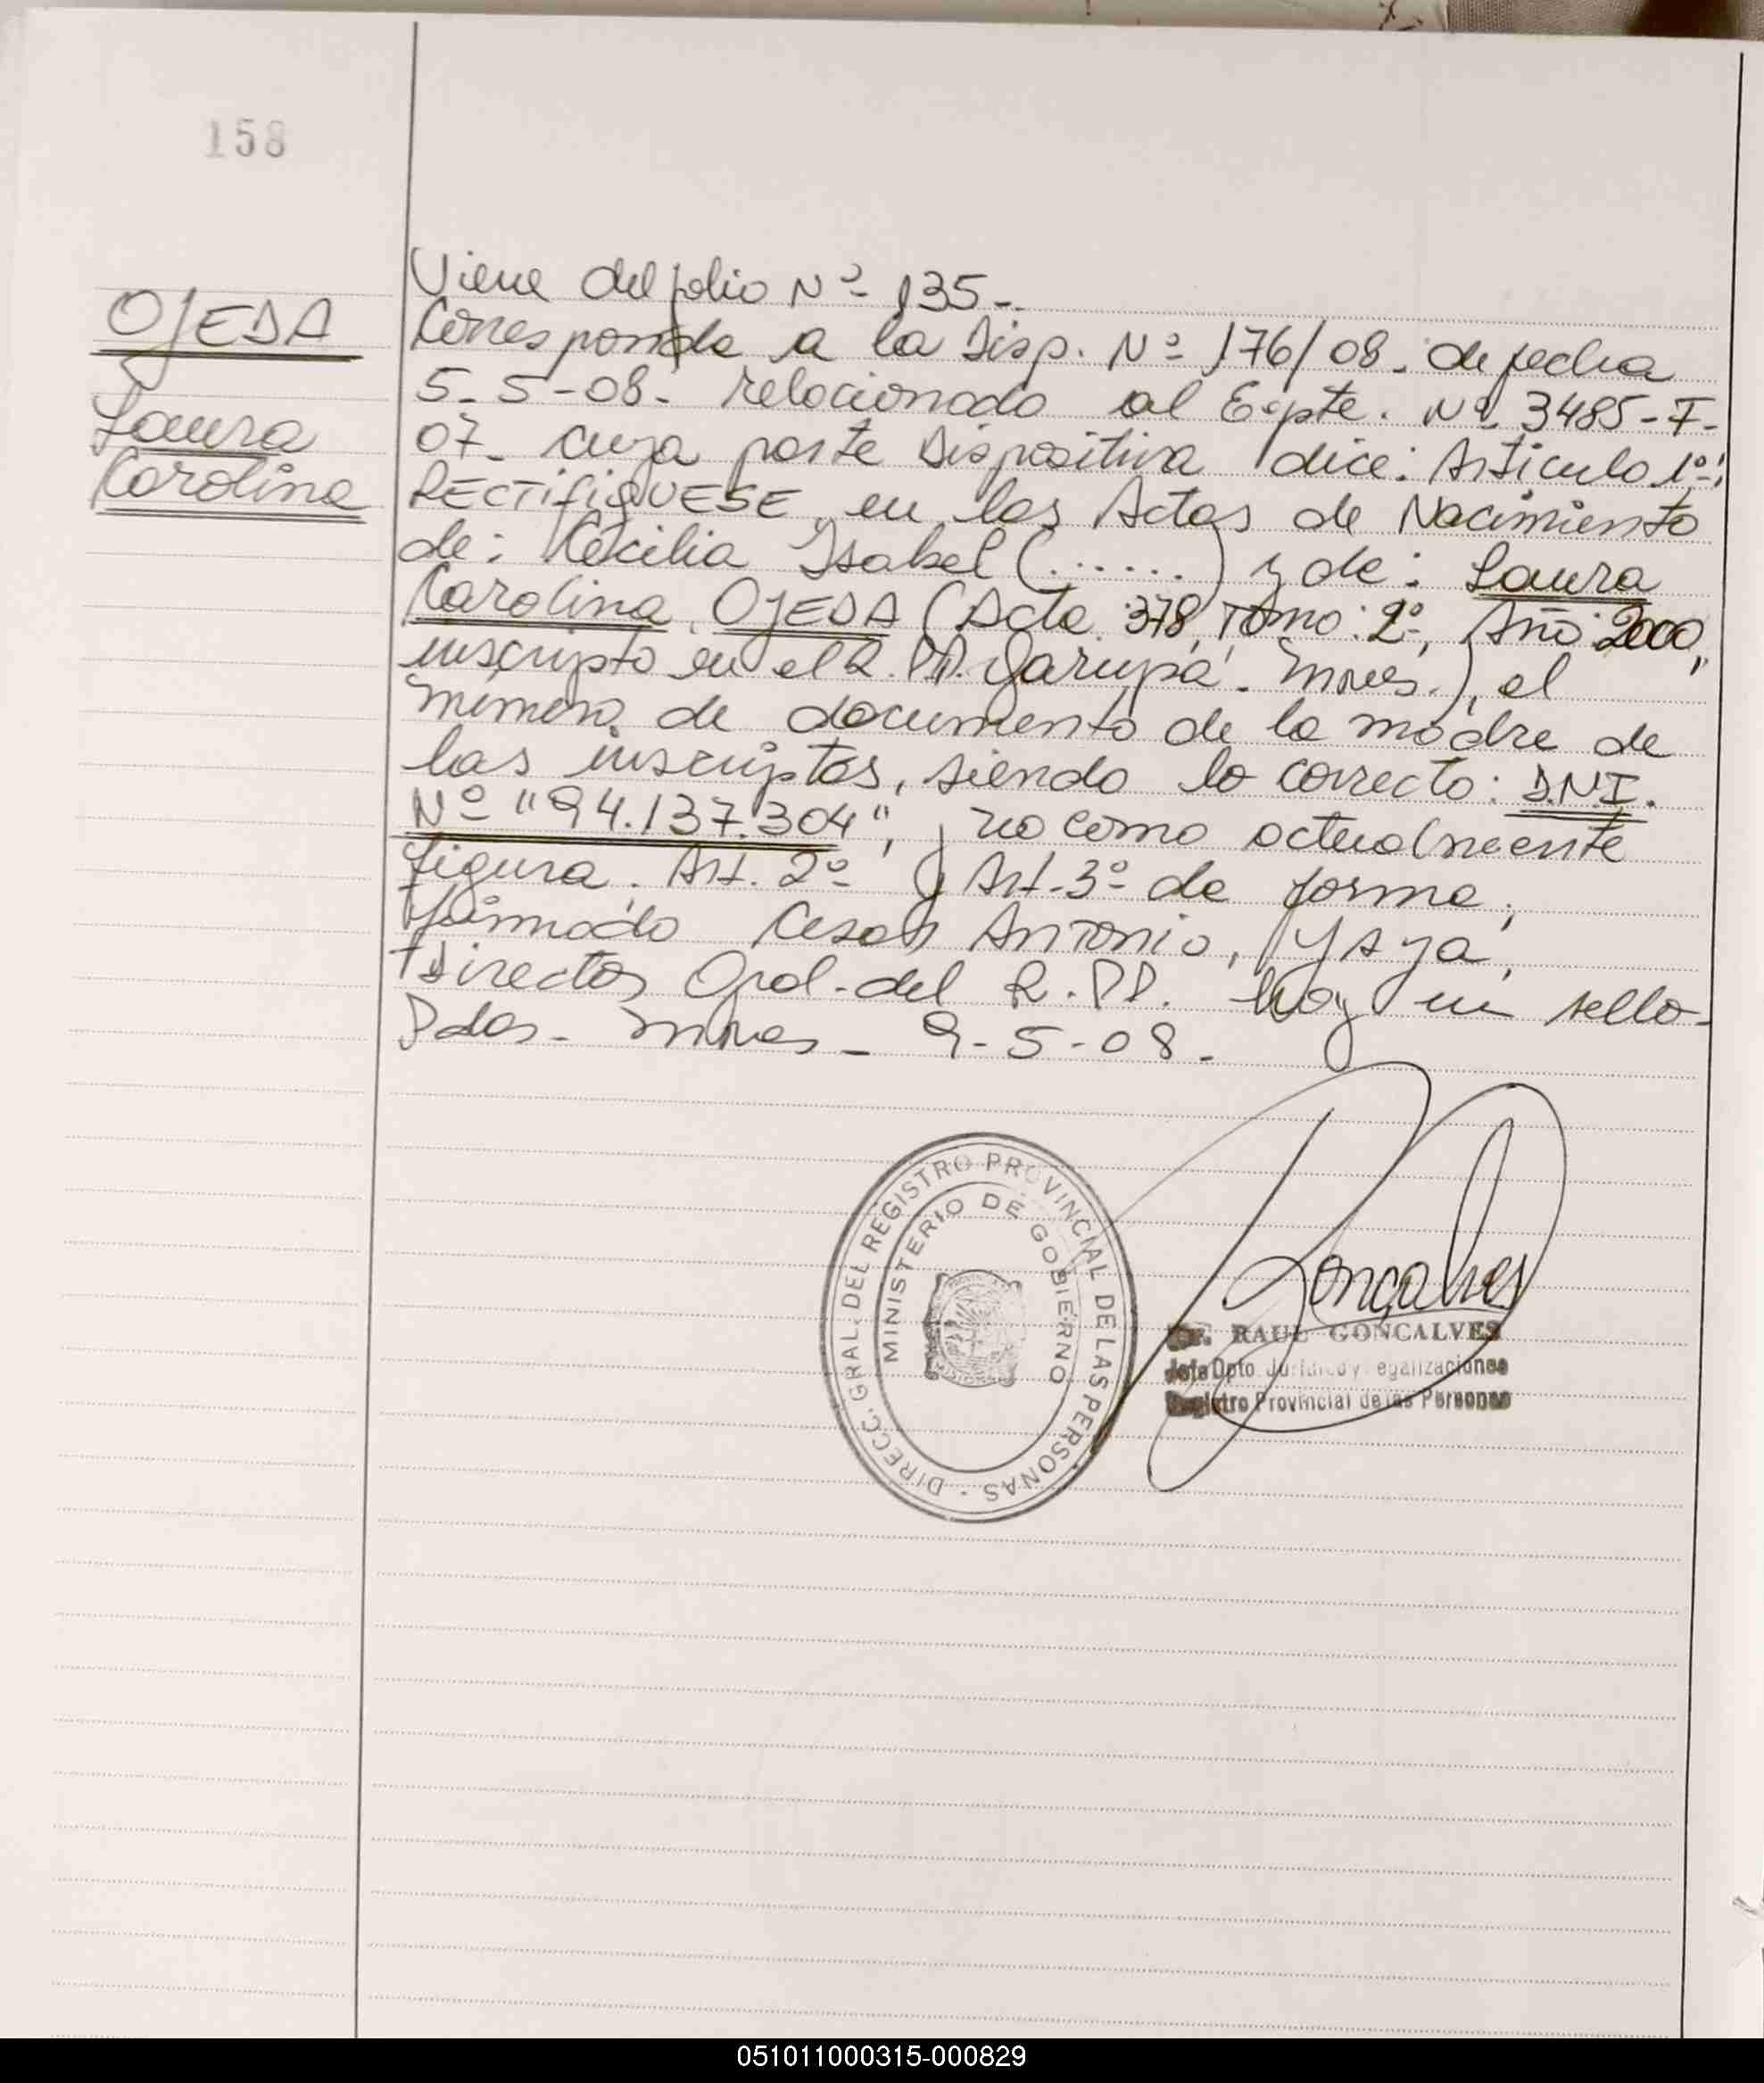 158
OJEDA
Laura
Carolina
Viene del folio Nº 135-.
Corresponde a la Disp. Nº 176/08. de fecha
5-5-08. relacionado al Expte. Nº 3485-F-
07- cuya parte Dispositiva dice: Artículo 1º:
RECTIFIQUESE, en las Actas de Nacimiento
de: Cecilia Isabel (......) y de: Laura
Carolina, OJEDA (Acta 378, Tomo: 2º, Año: 2000,
inscripto en el R.PP. Garupá. Mnes.), el
número de documento de la madre de
las inscriptas, siendo lo correcto: D.N.I.
Nº "94.137.304", y no como actualmente
figura. Art. 2º y Art. 3º de forma;
firmado Cesar Antonio, Ysya,
Director Gral. del R.PP. hay un sello-
Pdas- Mnes- 9-5-08.
DIRECC. GRAL. DEL REGISTRO PROVINCIAL DE LAS PERSONAS -
MINISTERIO DE GOBIERNO
Goncalves
Dr. RAUL GONCALVES
Jefe Dpto Jurídico y Legalizaciones
Registro Provincial de las Personas
051011000315-000829